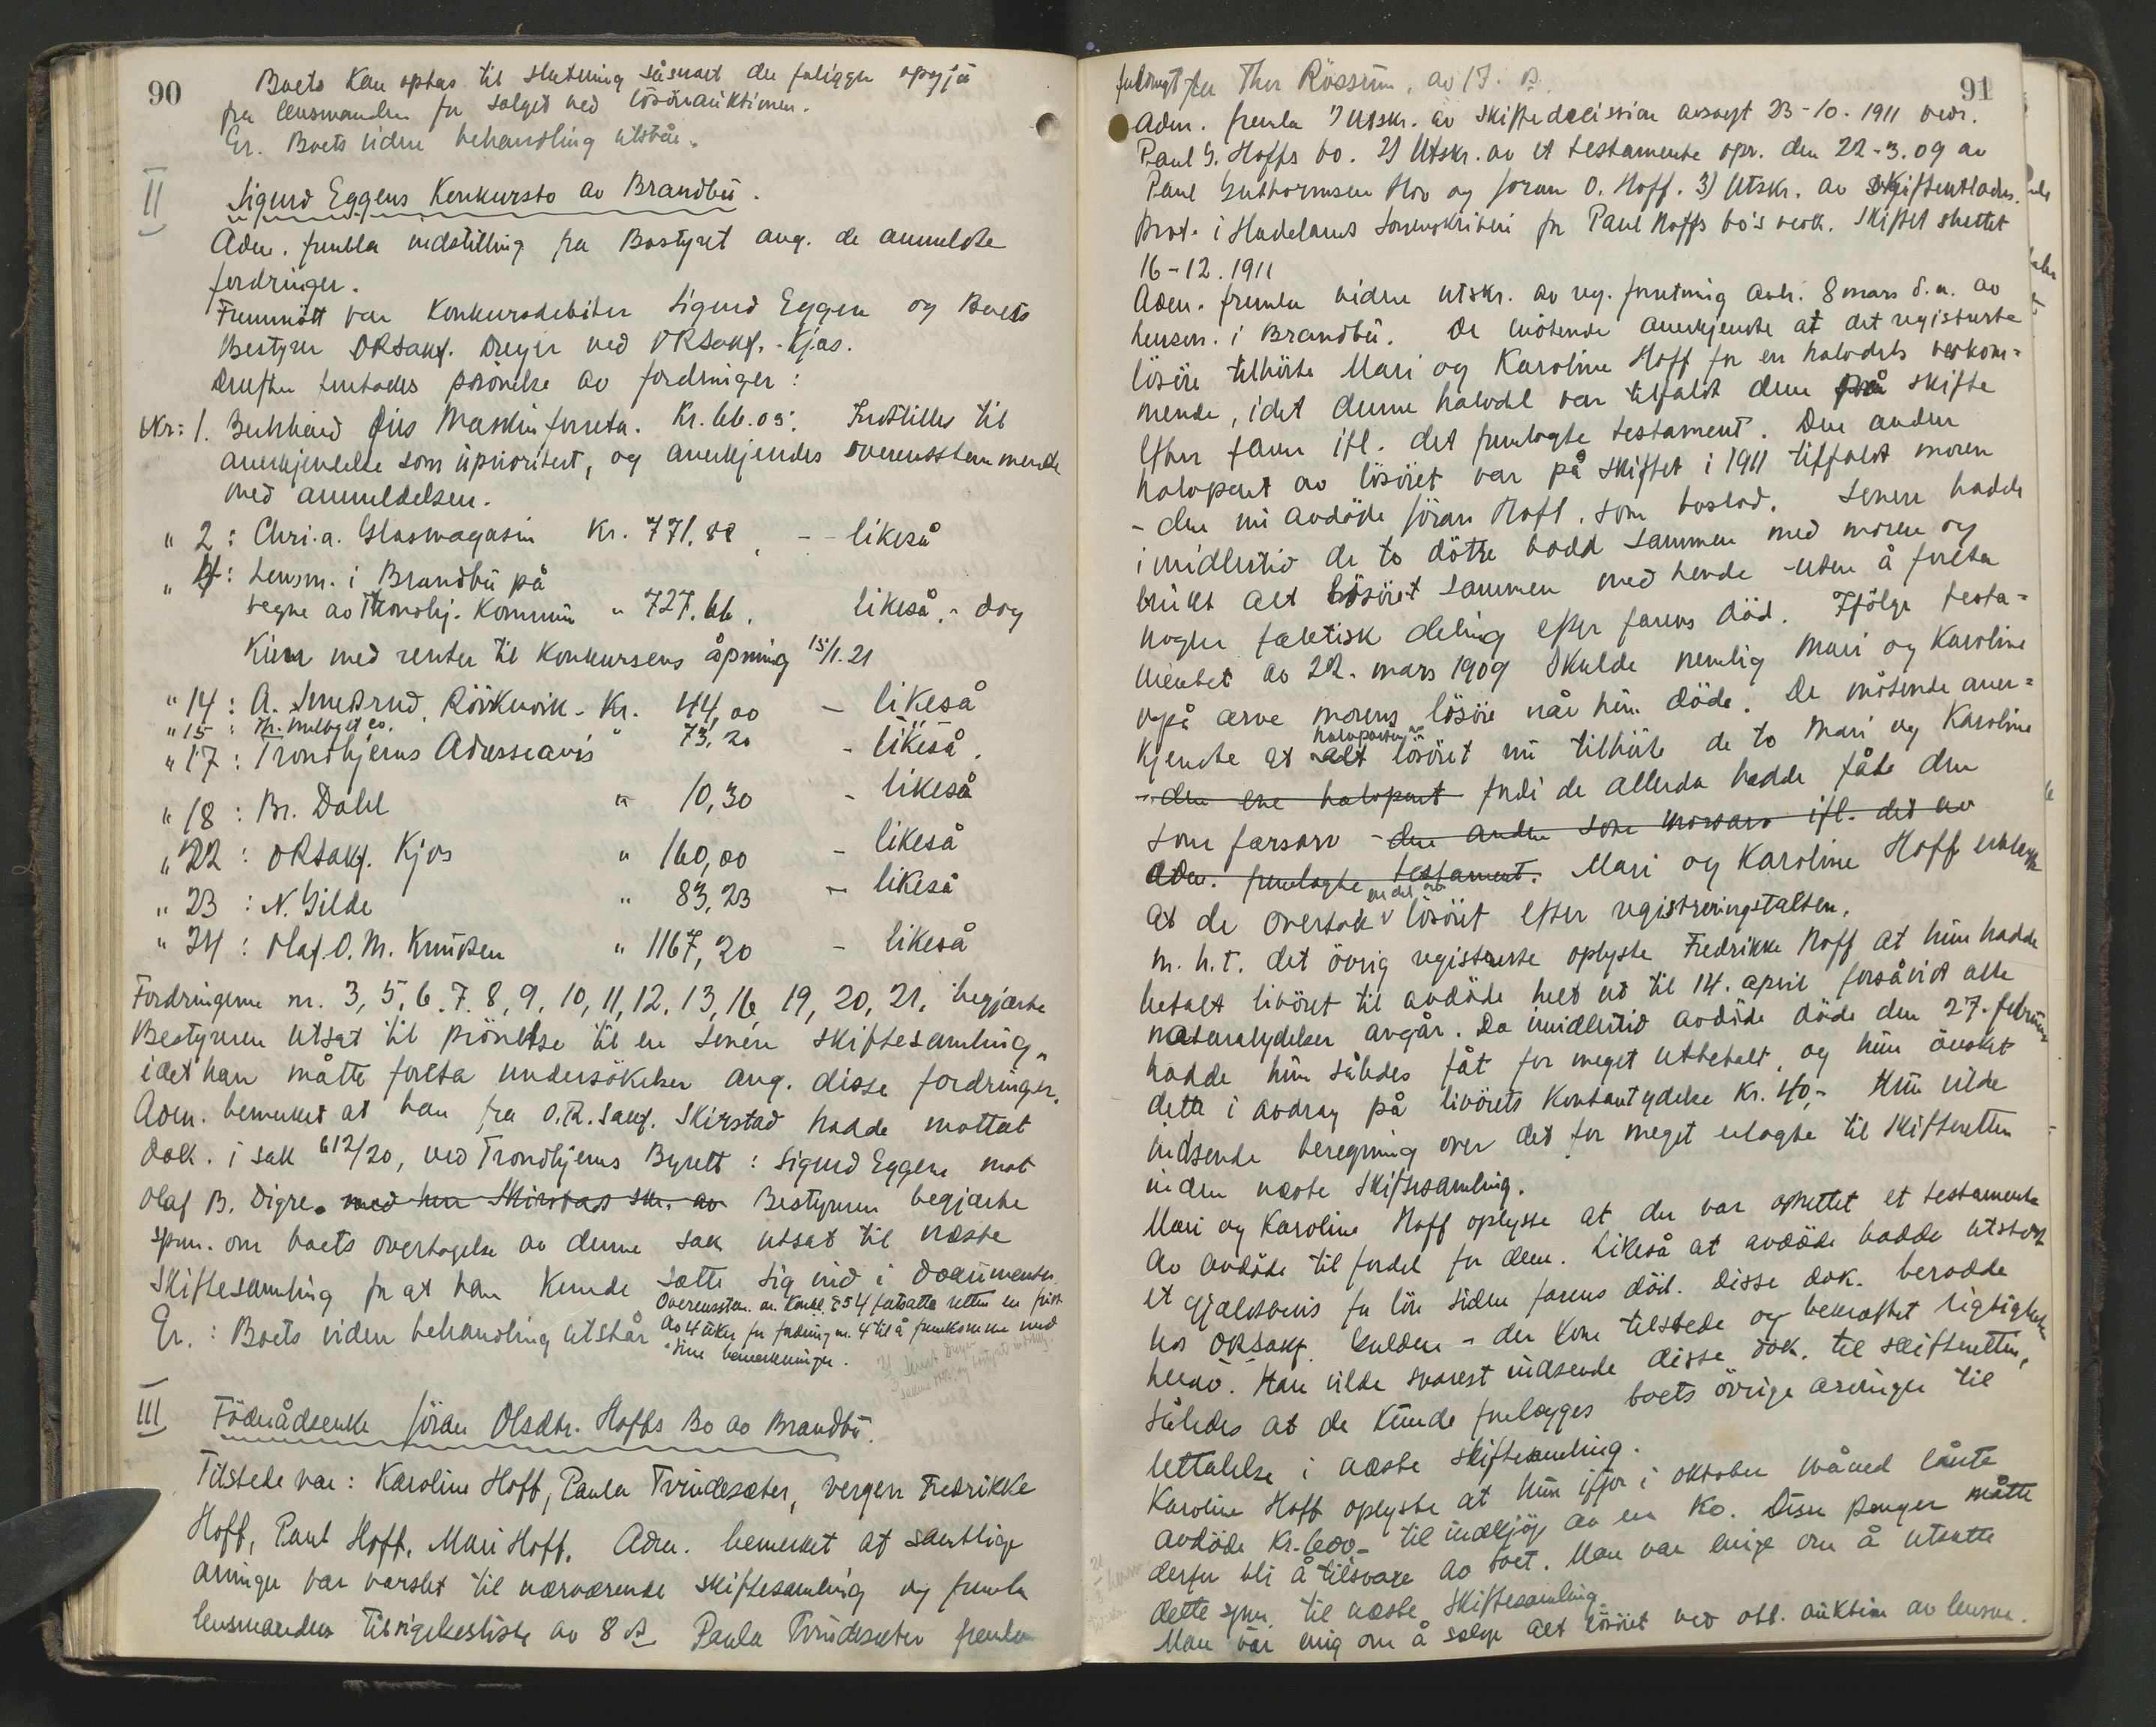 90
Boets kan optas til slutning såsnart der foreligger opgjør
fra lensmanden for salget ved løsøreauktionen.
Er. Boets videre behandling utstår.
II
Sigurd Eggens Konkursbo av Brandbu.
Adm. fremla indstilling fra Bostyret ang. de anmeldte
fordringer.
Fremmøtt var konkursdebitor Sigurd Eggen og Boets
Bestyrer ORSakf. Dreyer ved ORSakf. Kjos.
Derefter foretokes prøvelse av fordringer:
Nr: 1. Maskinforretn. Kr. 66.05. Indstilles til
anerkjendelse som uprioritert, og anerkjendes overensstemmende
med anmeldelsen.
" 2: Chri.a. Glasmagasin Kr. 771,88 - - likeså
" 4: Lensm. i Brandbu på
vegne av Trondhj. Kommune " 727.66. likeså, - dog
kun med renter til konkursens åpning 15/1.21
" 14: A. Smedsrud, Røikenvik - Kr. 44,00 - likeså
" 15: & co. " 73,20 - likeså.
" 17: Trondhjems Adresseavis
" 18: Br. Dahl " 10,30 - likeså
" 22: ORSakf. Kjos " 160,00 - likeså
" 23: N. Gilde " 83,23 - likeså
" 24: Olaf. O. M. Knudsen " 1167,20 - likeså
Fordringerne nr. 3, 5, 6, 7, 8, 9, 10, 11, 12, 13, 16, 19, 20, 21, begjærte
Bestyreren utsat til prøvelse til en senere skiftesamling,
idet han måtte foreta undersøkelser ang. disse fordringer.
Adm. bemerket at han fra O.R.Sakf. Skirstad hadde mottat
dok. i sak 612/20, ved Trondhjems Byrett: Sigurd Eggen mot
Olaf B. Digre. med hrr Skirstads skr. av Bestyreren begjærte
spm. om boets overtagelse av denne sak utsat til næste
skiftesamling for at han kunde sætte sig ind i documenter.
Overensstem. m. Konkl. § 54 fastsatte retten en frist
Er.: Boets videre behandling utstår
av 4 uker for fordring nr. 4 til å fremkomme med
sine bemerkninger.
III
Føderådsenke Jøran Olsdtr. Hoffs Bo av Brandbu.
Tilstede var: Karoline Hoff, Paula Tvindesæter, vergen Fredrikke
Hoff, Paul Hoff, Mari Hoff. Adm. bemerket at samtlige
arvinger var varslet til nærværende skiftesamling og fremla
lensmandens tilsigelsesliste av 8 ds. Paula Tvindesæter fremla
91
fuldmagt fra Thor Røssum, av 17. ds.
Adm. fremla 1) Utskr. av skiftedecision avsagt 23-10. 1911 vedr.
Paul G. Hoffs bo. 2) Utskr. av et testamente opr. den 22-3.09 av
Paul Guthormsen Hov og Jøran O. Hoff. 3) Utskr. av Skifteutlodn.
prot. i Hadelands sorenskriveri for Paul Hoffs bo's vedk. Skiftet sluttet
16-12. 1911
Adm. fremla videre utskr. av reg. forretning avh. 8 mars d.a. av
lensm. i Brandbu. De møtende anerkjendte at det registrerte
løsøre tilhørte Mari og Karoline Hoff for en halvdels vedkom-
mende, idet denne halvdel var tilfaldt dem på skifte
efter faren ifl. det fremlagte testament. Den anden
halvpart av løsøret var på skiftet i 1911 tilfaldt moren
- den nu avdøde Jøran Hoff, som boslod. Senere hadde
imidlertid de to døtre bodd sammen med moren og
brukt alt løsøret sammen med hende - uten å foreta
nogen faktisk deling efter farens død. Ifølge testa-
mentet av 22. mars 1909 skulde nemlig Mari og Karoline
også arve morens løsøre når hun døde. De møtende aner-
halvparten av
kjendte at alt løsøret nu tilhørte de to Mari og Karoline
- den ene halvpart fordi de allerede hadde fåt den
som farsarv - den anden som morsarv ifl. det av
adm. fremlagte testament. Mari og Karoline Hoff erklærte
en del av
at de overtok v løsøret efter registreringstaksten.
M. h. t. det øvrig registrerte oplyste Fredrikke Hoff at hun hadde
betalt livøret til avdøde helt ut til 14. april forsåvidt alle
naturalydelser angår. Da imidlertid avdøde døde den 27. februar
hadde hun således fåt for meget utbetalt, og hun ønsket
dette i avdrag på livørets kontantydelse kr. 40,- Hun vilde
indsende beregning over det for meget erlagte til skifteretten
inden næste skiftesamling.
Mari og Karoline Hoff oplyste at der var oprettet et testamente
av avdøde til fordel for dem. Likeså at avdøde hadde utstedt
et gjældsbevis for løn siden farens død. Disse dok. berodde
hos ORSakf. Gulden - der kom tilstede og bekræftet rigtigheten
herav. Han vilde snarest indsende disse dok. til skifteretten,
således at de kunde forelægges boets øvrige arvinger til
uttalelse i næste skiftesamling.
Karoline Hoff oplyste at hun ifjor i oktober måned lånte
avdøde kr. 600,- til indkjøp av en ko. Disse penger måtte
derfor bli å tilsvare av boet. Man var enige om å utsætte
dette spm. til næste skiftesamling.
Man var enig om å selge alt løsøret ved off. auktion av lensm.